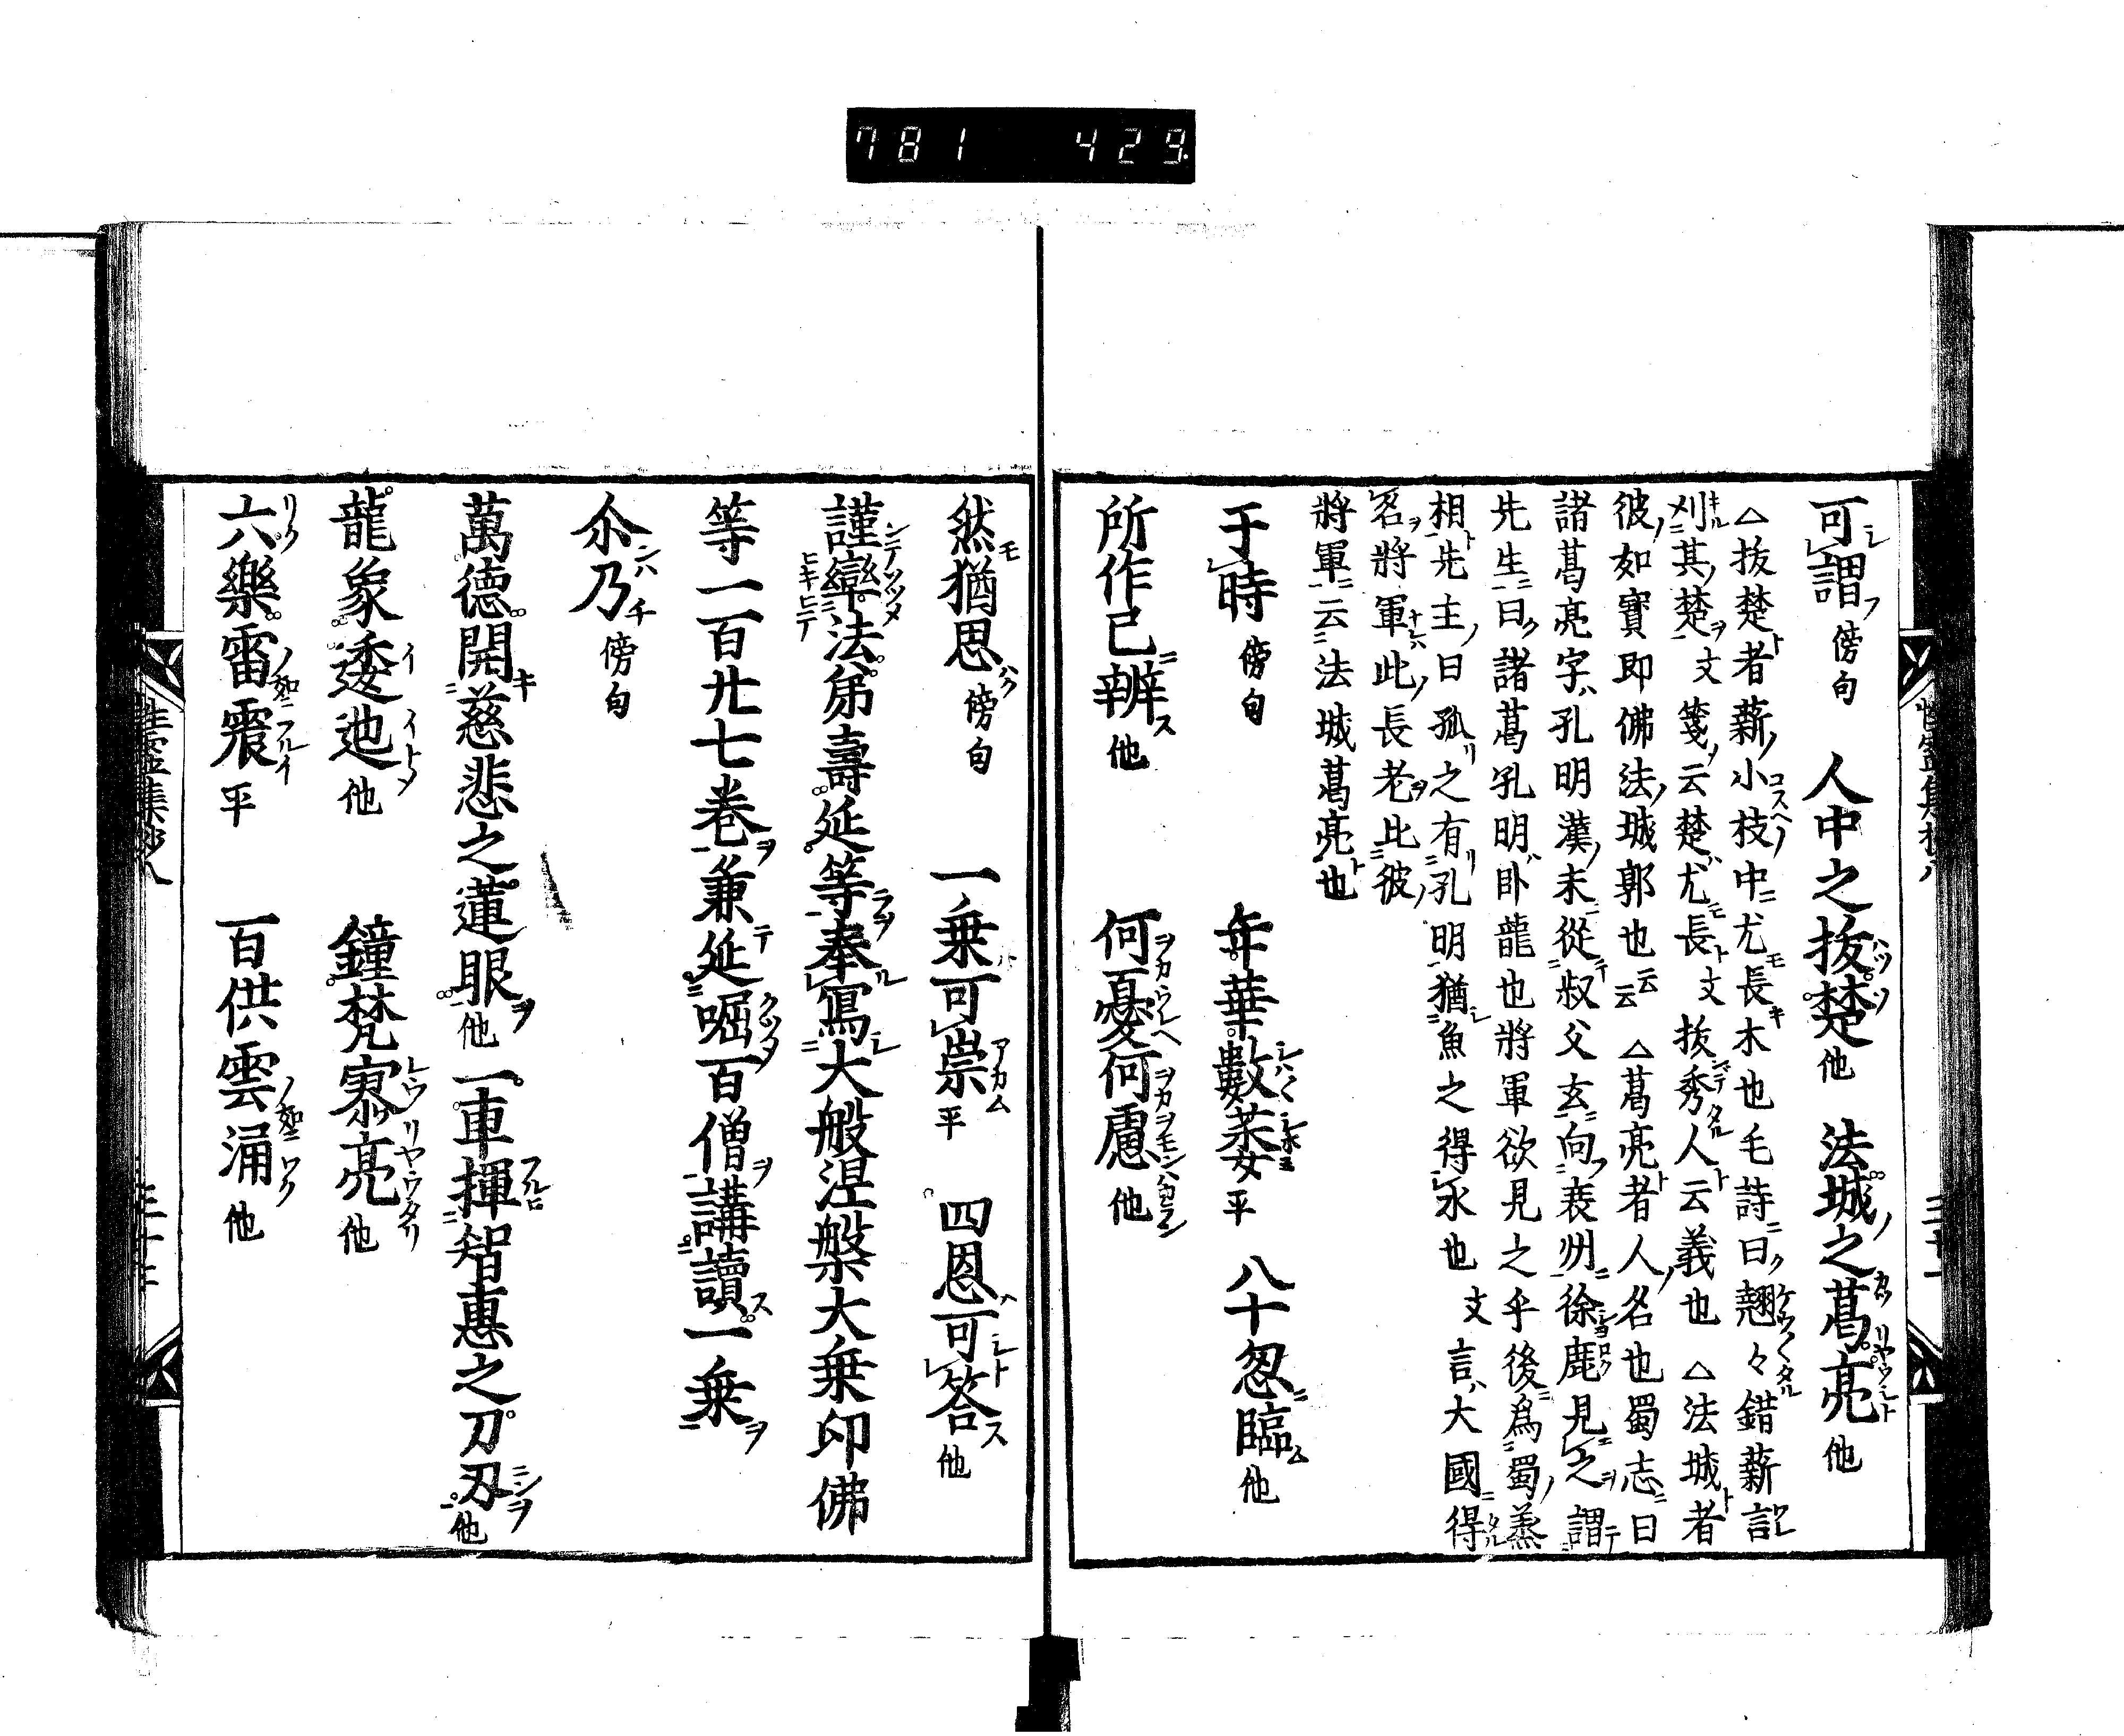 781 429
可謂 傍句 人中之拔楚 他 法城之葛亮 他
△拔楚者薪小枝中尤長木也毛詩曰翹々錯薪言
刈其楚 文 箋云楚尤長 文 拔秀人云義也 △法城者
彼如實即佛法城郭也 云云 △葛亮者人名也蜀志曰
諸葛亮字孔明漢末從叔父玄向表州徐鹿見之謂
先生曰諸葛孔明臥龍也將軍欲見之乎後爲蜀
相先主曰孤之有孔明猶魚之得水也 文 言大國得
名將軍此長老比彼
將軍云法城葛亮也
于時 傍句 年華數 平 八十忽臨 他
所作已辨 他 何憂何慮 他
然猶思 傍句 一乗可崇 平 四恩可答 他
謹牽法弟壽延等奉寫大般涅槃大乗印佛
等一百廿七卷兼延崛百僧講讀一乗
尒乃 傍句
萬德開慈悲之蓮眼 他 一車揮智惠之刀刃 他
龍象逶迆 他 鐘梵寮亮 他
六樂雷震 平 百供雲涌 他
性霊集鈔八